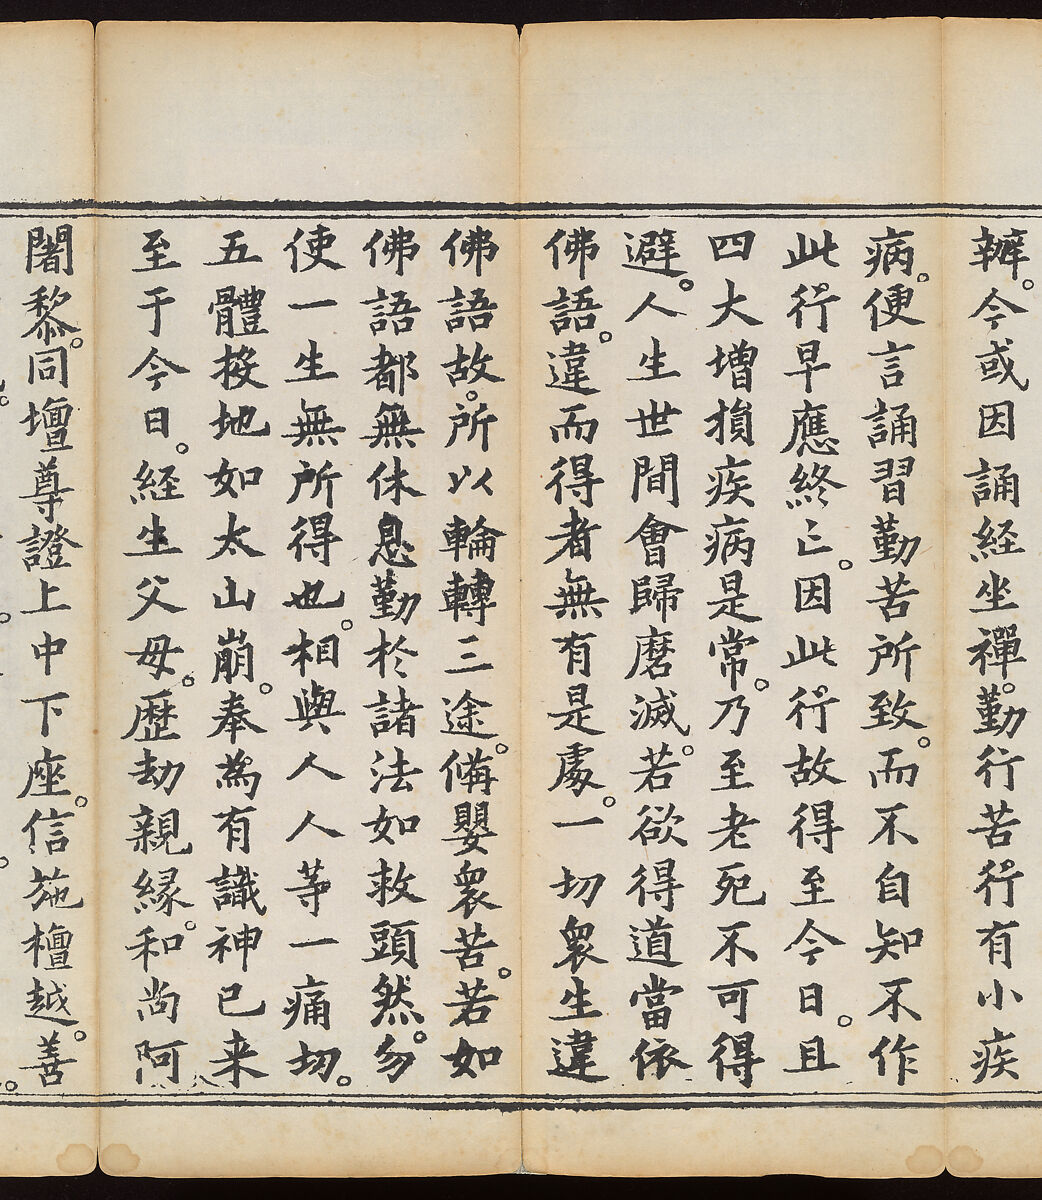 辦。今或因誦経坐禪。勤行苦行有小疾
病。便言誦習勤苦所致。而不自知不作
此行早應終亡。因此行故得至今日。且
四大増損疾病是常。乃至老死不可得
避。人生世間會歸磨滅。若欲得道當依
佛語。違而得者無有是處。一切衆生違
佛語故。所以輪轉三途。備嬰衆苦。若如
佛語都無休息勤於諸法如救頭然。勿
使一生無所得也。相與人人等一痛切。
五體投地如太山崩。奉為有識神已来
至于今日。経生父母。歴劫親縁。和尚阿
闍黎。同壇尊證上中下座。信施檀越。善